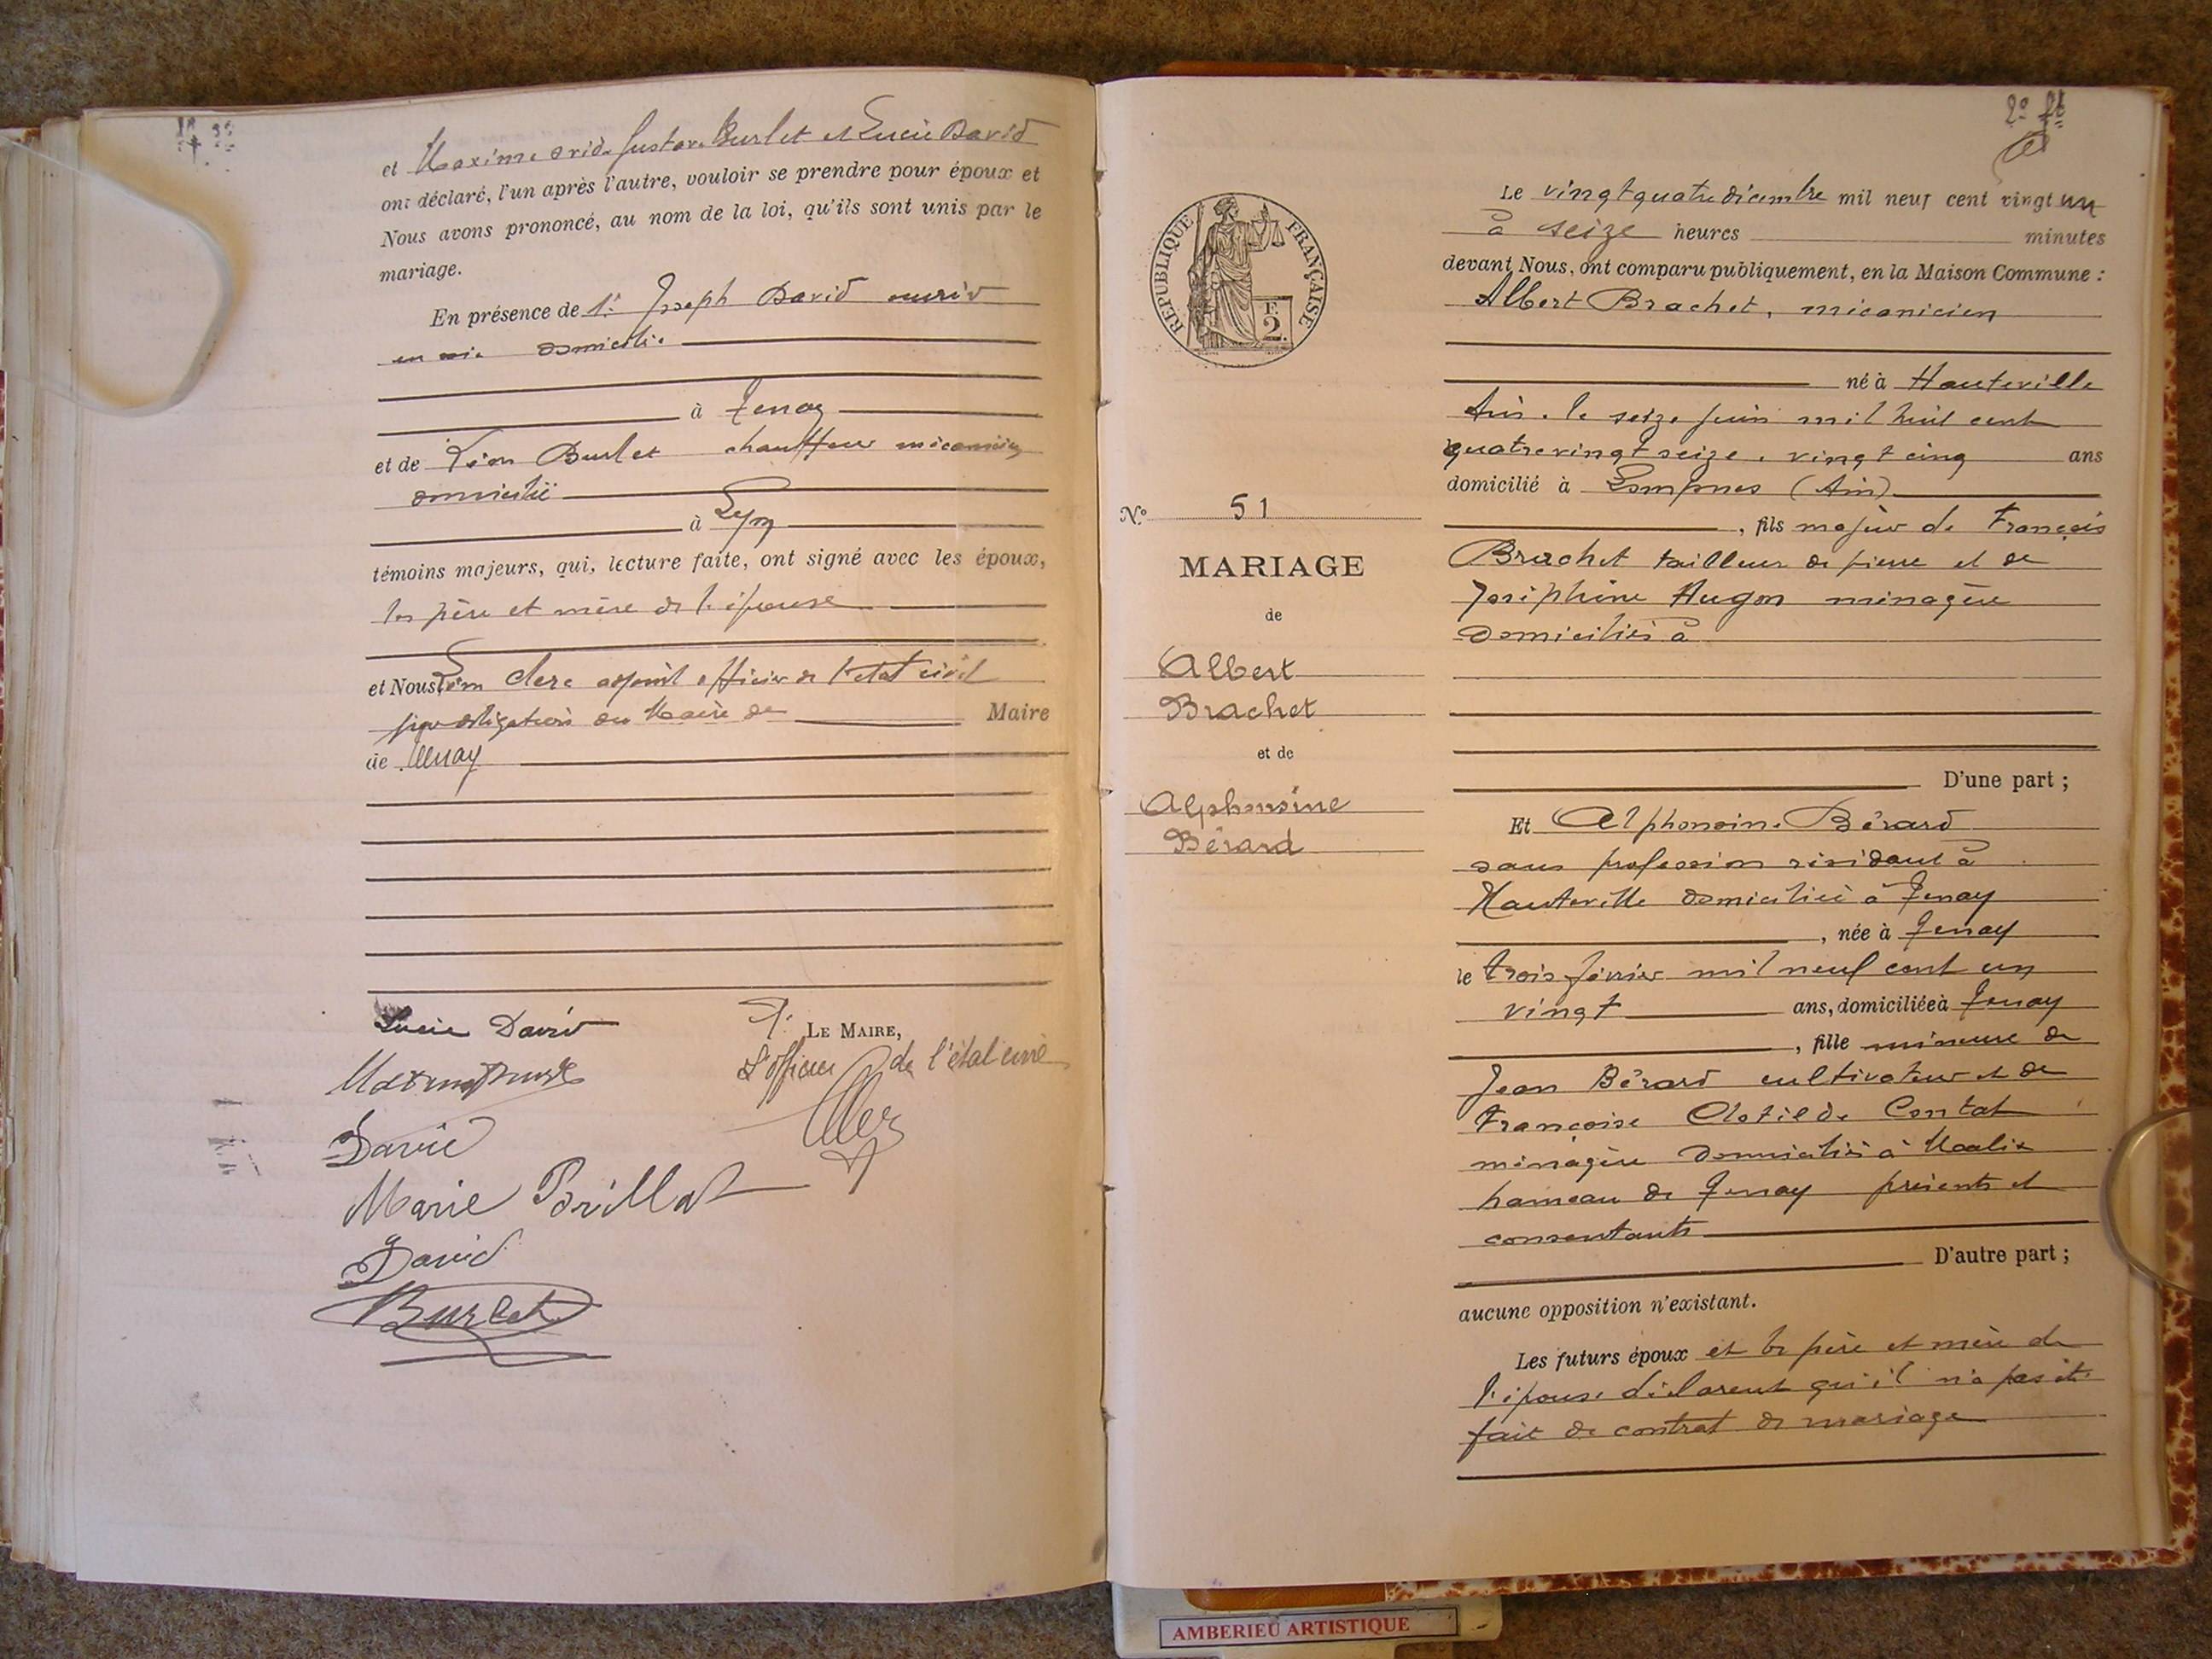 et Maxime Ovide Gustave Burlet et Lucie David
ont déclaré, l'un après l'autre, vouloir se prendre pour époux et
Nous avons prononcé, au nom de la loi, qu'ils sont unis par le
mariage.
En présence de 1° Joseph David ouvrier
en soie domicilié
à Tenay
et de Léon Burlet chauffeur mécanicien
domicilié
à Lyon
témoins majeurs, qui, lecture faite, ont signé avec les époux,
les père et mère de l'épouse
et Nous Léon Clerc adjoint officier de l'état civil
par délégation du Maire de Maire
de Tenay
Lucie David
LE MAIRE,
L'officier de l'état civil
David
Marie Brillat
David
Burlet
2° ft
REPUBLIQUE FRANÇAISE
F.
2.
Le vingt quatre décembre mil neuf cent vingt un
à seize heures minutes
devant Nous, ont comparu publiquement, en la Maison Commune :
Albert Brachet, mécanicien
né à Hauteville
Ain, le seize juin mil huit cent
quatre vingt seize, vingt cinq ans
domicilié à Lompnes (Ain)
, fils majeur de François
Brachet tailleur de pierre et de
Joséphine Hugon ménagère
domiciliés à
D'une part ;
N° 51
MARIAGE
de
Albert
Brachet
et de
Alphonsine
Bérard
Et Alphonsine Bérard
sans profession résidant à
Hauteville domiciliée à Tenay
, née à Tenay
le trois février mil neuf cent un
vingt ans, domiciliée à Tenay
, fille mineure de
Jean Bérard cultivateur et de
Françoise Clotilde Contat
ménagère domiciliés à Malix
hameau de Tenay présents et
consentants
D'autre part ;
aucune opposition n'existant.
Les futurs époux et les père et mère de
l'épouse déclarent qu'il n'a pas été
fait de contrat de mariage
AMBERIEU ARTISTIQUE